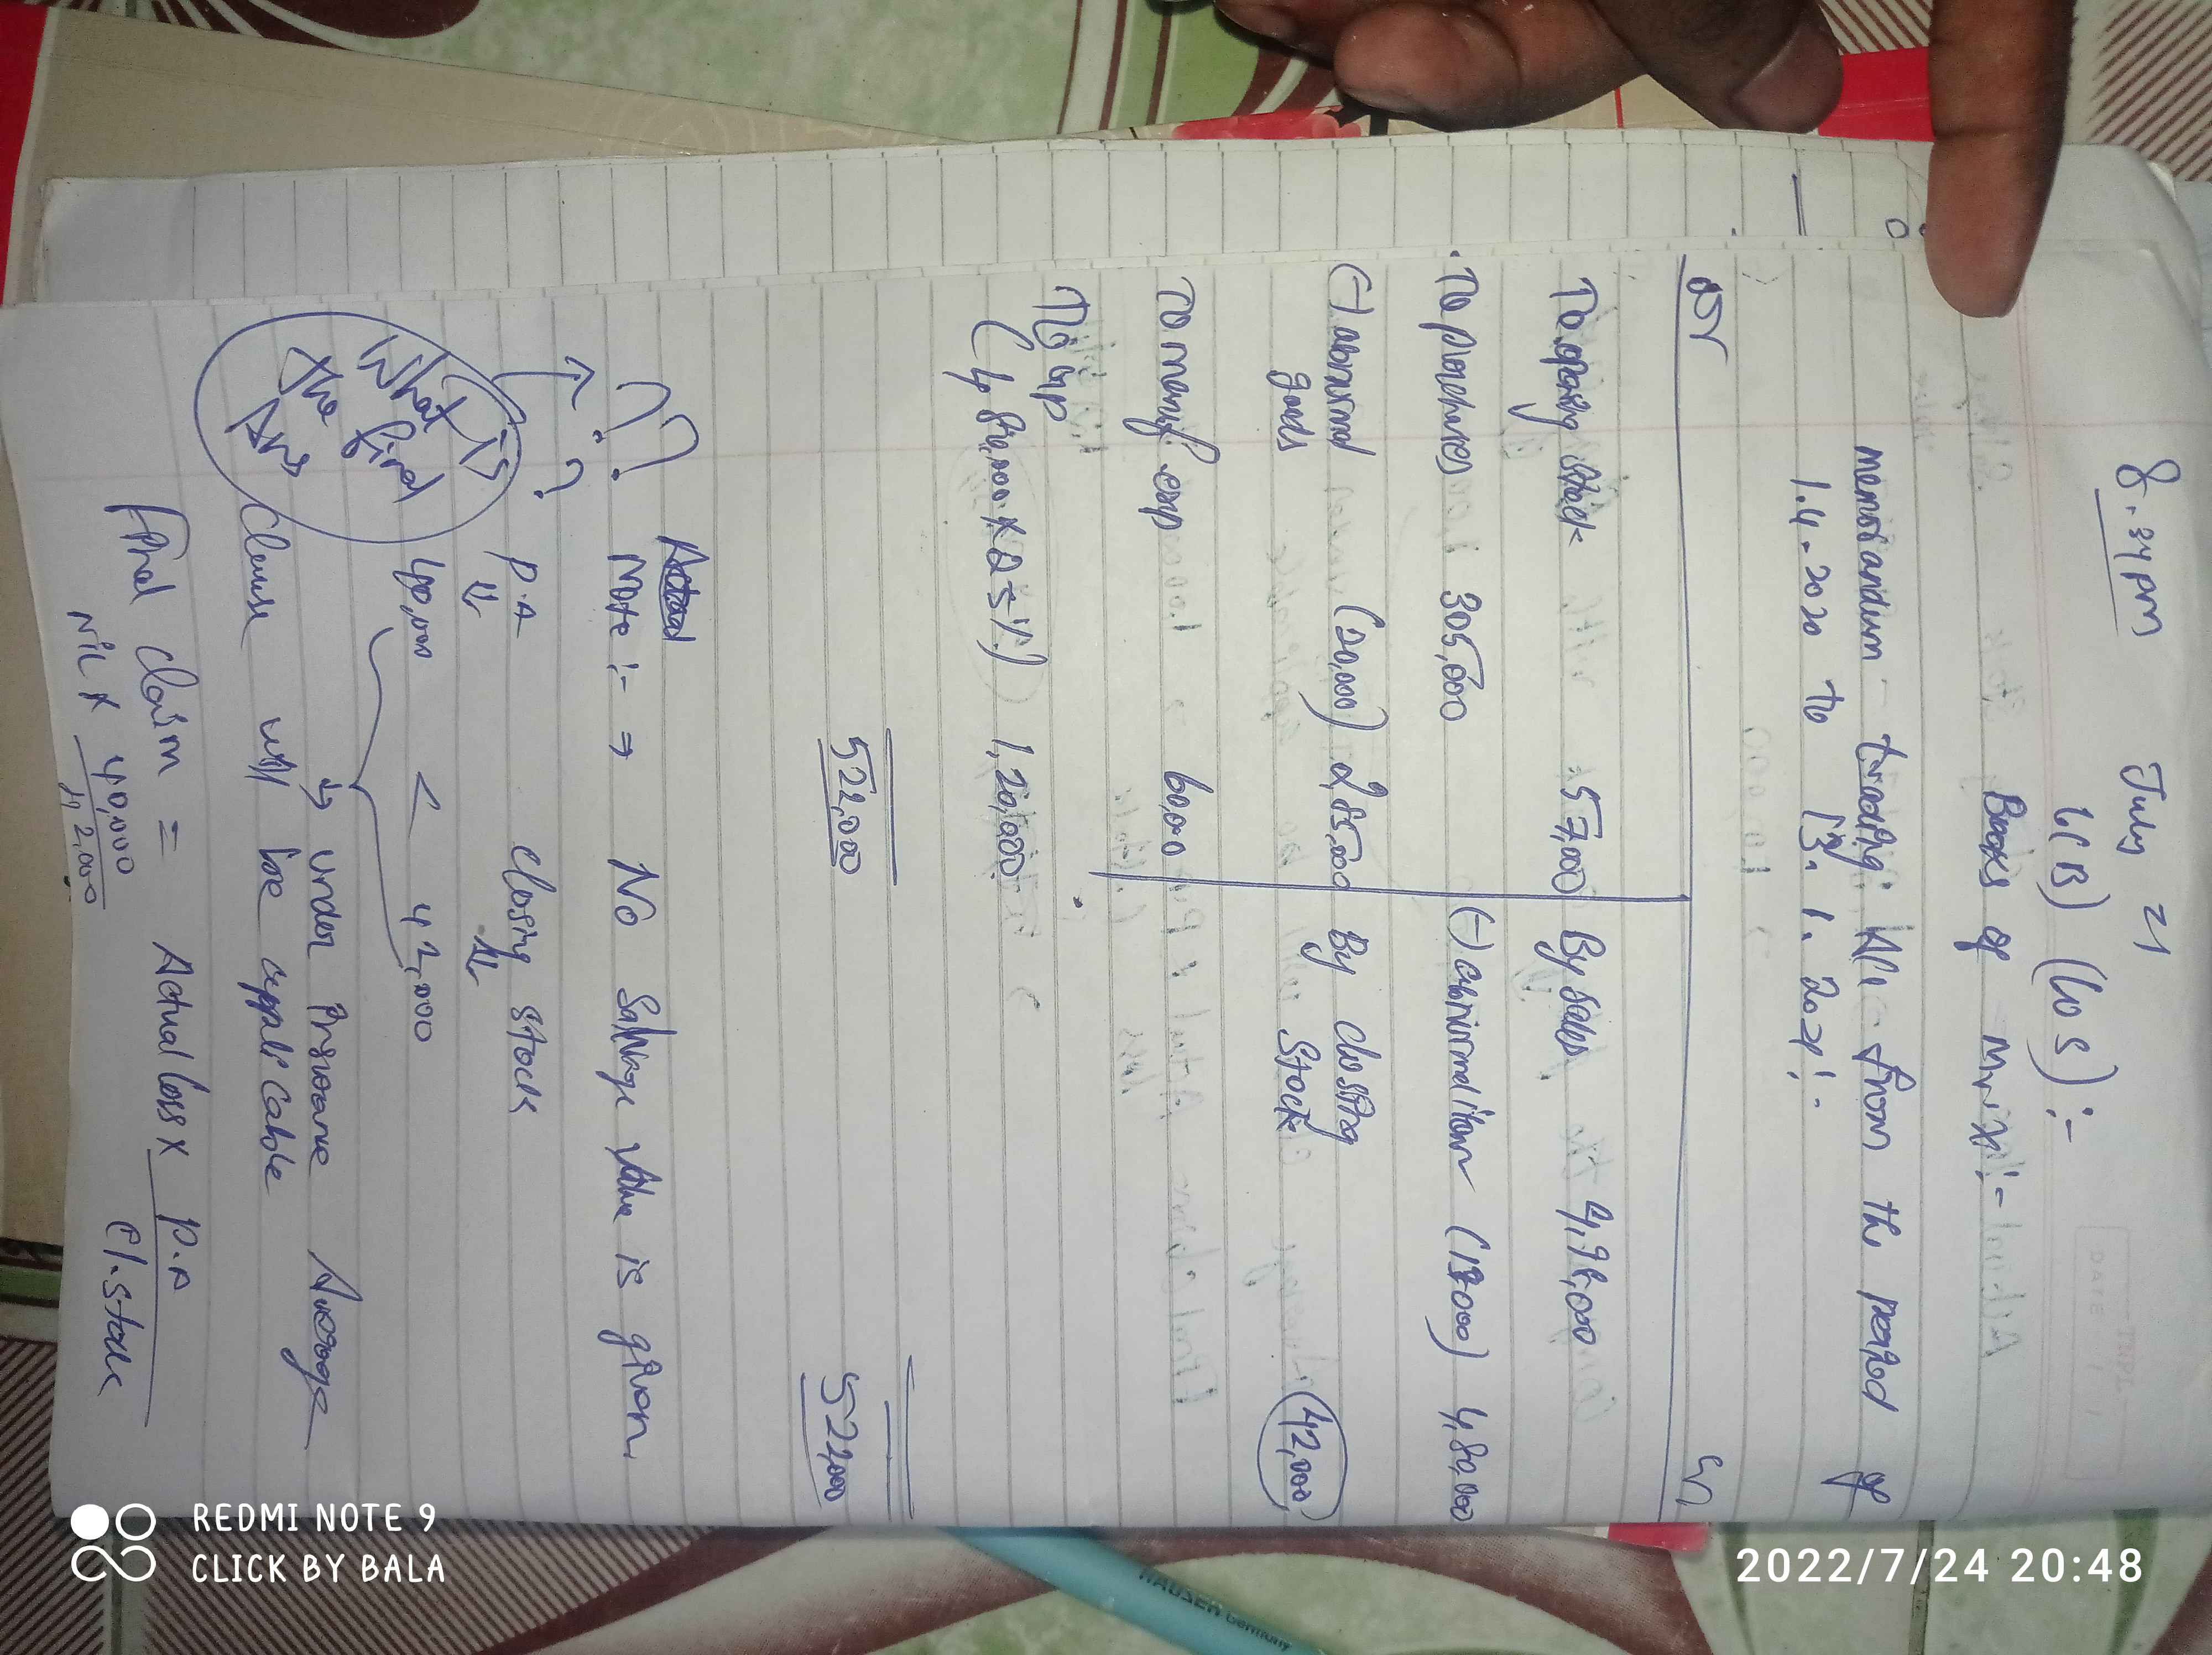 8.34pm July 21
4(B) (LOS) :-
Books of Mr. X :-
memorandum trading A/c from the period of
1.4.2020 to 13.1.2021 :-
To opening stock 57,000 By sales 4,95,000
To purchases 305,000 (-) abnormal item (15000) 4,80,000
(-) abnormal goods (20,000) 2,85,000 By closing Stock 42,000
To manuf. exp 60,000
To GP
(4,80,000 x 25%) 1,20,000
522,000 522,000
Note :- ⇒ No Salvage value is given
P.A closing stock
40,000 < 42,000
↳ under Insurance Average
clause will be applicable
What is
final
the
Ans
Final claim = Actual loss x P.A / cl. stock
NIL x 40,000 / 42,000
REDMI NOTE 9
CLICK BY BALA
2022/7/24 20:48
HAUSER Germany